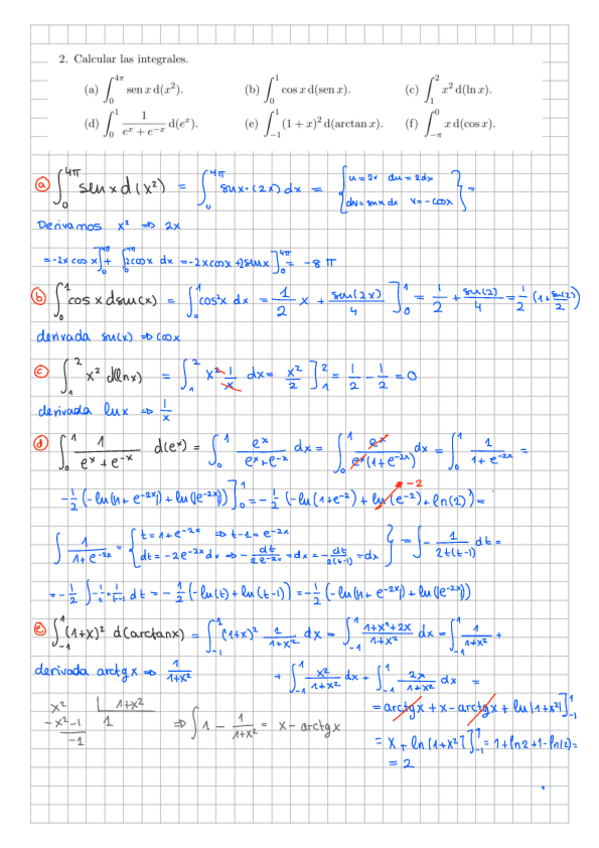 2. Calcular las integrales.
(a) ∫₀^{4π} sen x d(x²). (b) ∫₀^1 cos x d(sen x). (c) ∫₁^2 x² d(ln x).
(d) ∫₀^1 1/(eˣ + e⁻ˣ) d(eˣ). (e) ∫₋₁^1 (1 + x)² d(arctan x). (f) ∫_{-π}^0 x d(cos x).
ⓐ ∫₀^{4π} sen x d(x²) = ∫₀^{4π} sin x · (2x) dx = { u = 2x du = 2dx
dv = sin x dx v = -cos x } =
Derivamos x² ⇒ 2x
= -2x cos x]₀^{4π} + ∫₀^{4π} 2cos x dx = -2x cos x + 2sin x]₀^{4π} = -8π
ⓑ ∫₀^1 cos x dsin(x) = ∫₀^1 cos²x dx = 1/2 x + sin(2x)/4 ]₀^1 = 1/2 + sin(2)/4 = 1/2 (1 + sin(2)/2)
derivada sin(x) ⇒ cos x
ⓒ ∫₁^2 x² d(ln x) = ∫₁^2 x² · 1/x dx = x²/2 ]₁^2 = 1/2 - 1/2 = 0
derivada ln x ⇒ 1/x
ⓓ ∫₀^1 1/(eˣ + e⁻ˣ) d(eˣ) = ∫₀^1 eˣ/(eˣ + e⁻ˣ) dx = ∫₀^1 eˣ/(eˣ(1 + e^{-2x})) dx = ∫₀^1 1/(1 + e^{-2x}) =
-2
-1/2 (-ln(1 + e^{-2x}) + ln(e^{-2x}))]₀^1 = -1/2 (-ln(1 + e⁻²) + ln(e⁻²) + ln(2)) =
∫ 1/(1 + e^{-2x}) = { t = 1 + e^{-2x} ⇒ t - 1 = e^{-2x}
dt = -2e^{-2x} dx ⇒ -dt/(2e^{-2x}) = dx = -dt/(2(t-1)) = dx } = ∫ -1/(2t(t-1)) dt =
= -1/2 ∫ -1/t + 1/(t-1) dt = -1/2 (-ln(t) + ln(t-1)) = -1/2 (-ln(1 + e^{-2x}) + ln(e^{-2x}))
ⓔ ∫₋₁^1 (1+x)² d(arctan x) = ∫₋₁^1 (1+x)² 1/(1+x²) dx = ∫₋₁^1 (1+x²+2x)/(1+x²) dx = ∫₋₁^1 1/(1+x²) +
derivada arctg x ⇒ 1/(1+x²) + ∫₋₁^1 x²/(1+x²) dx + ∫₋₁^1 2x/(1+x²) dx =
x² | 1+x²
-x²-1 1 ⇒ ∫ 1 - 1/(1+x²) = x - arctg x
-1
= arctg x + x - arctg x + ln|1+x²|]₋₁^1
= x + ln(1+x²)]₋₁^1 = 1 + ln2 + 1 - ln(2) =
= 2